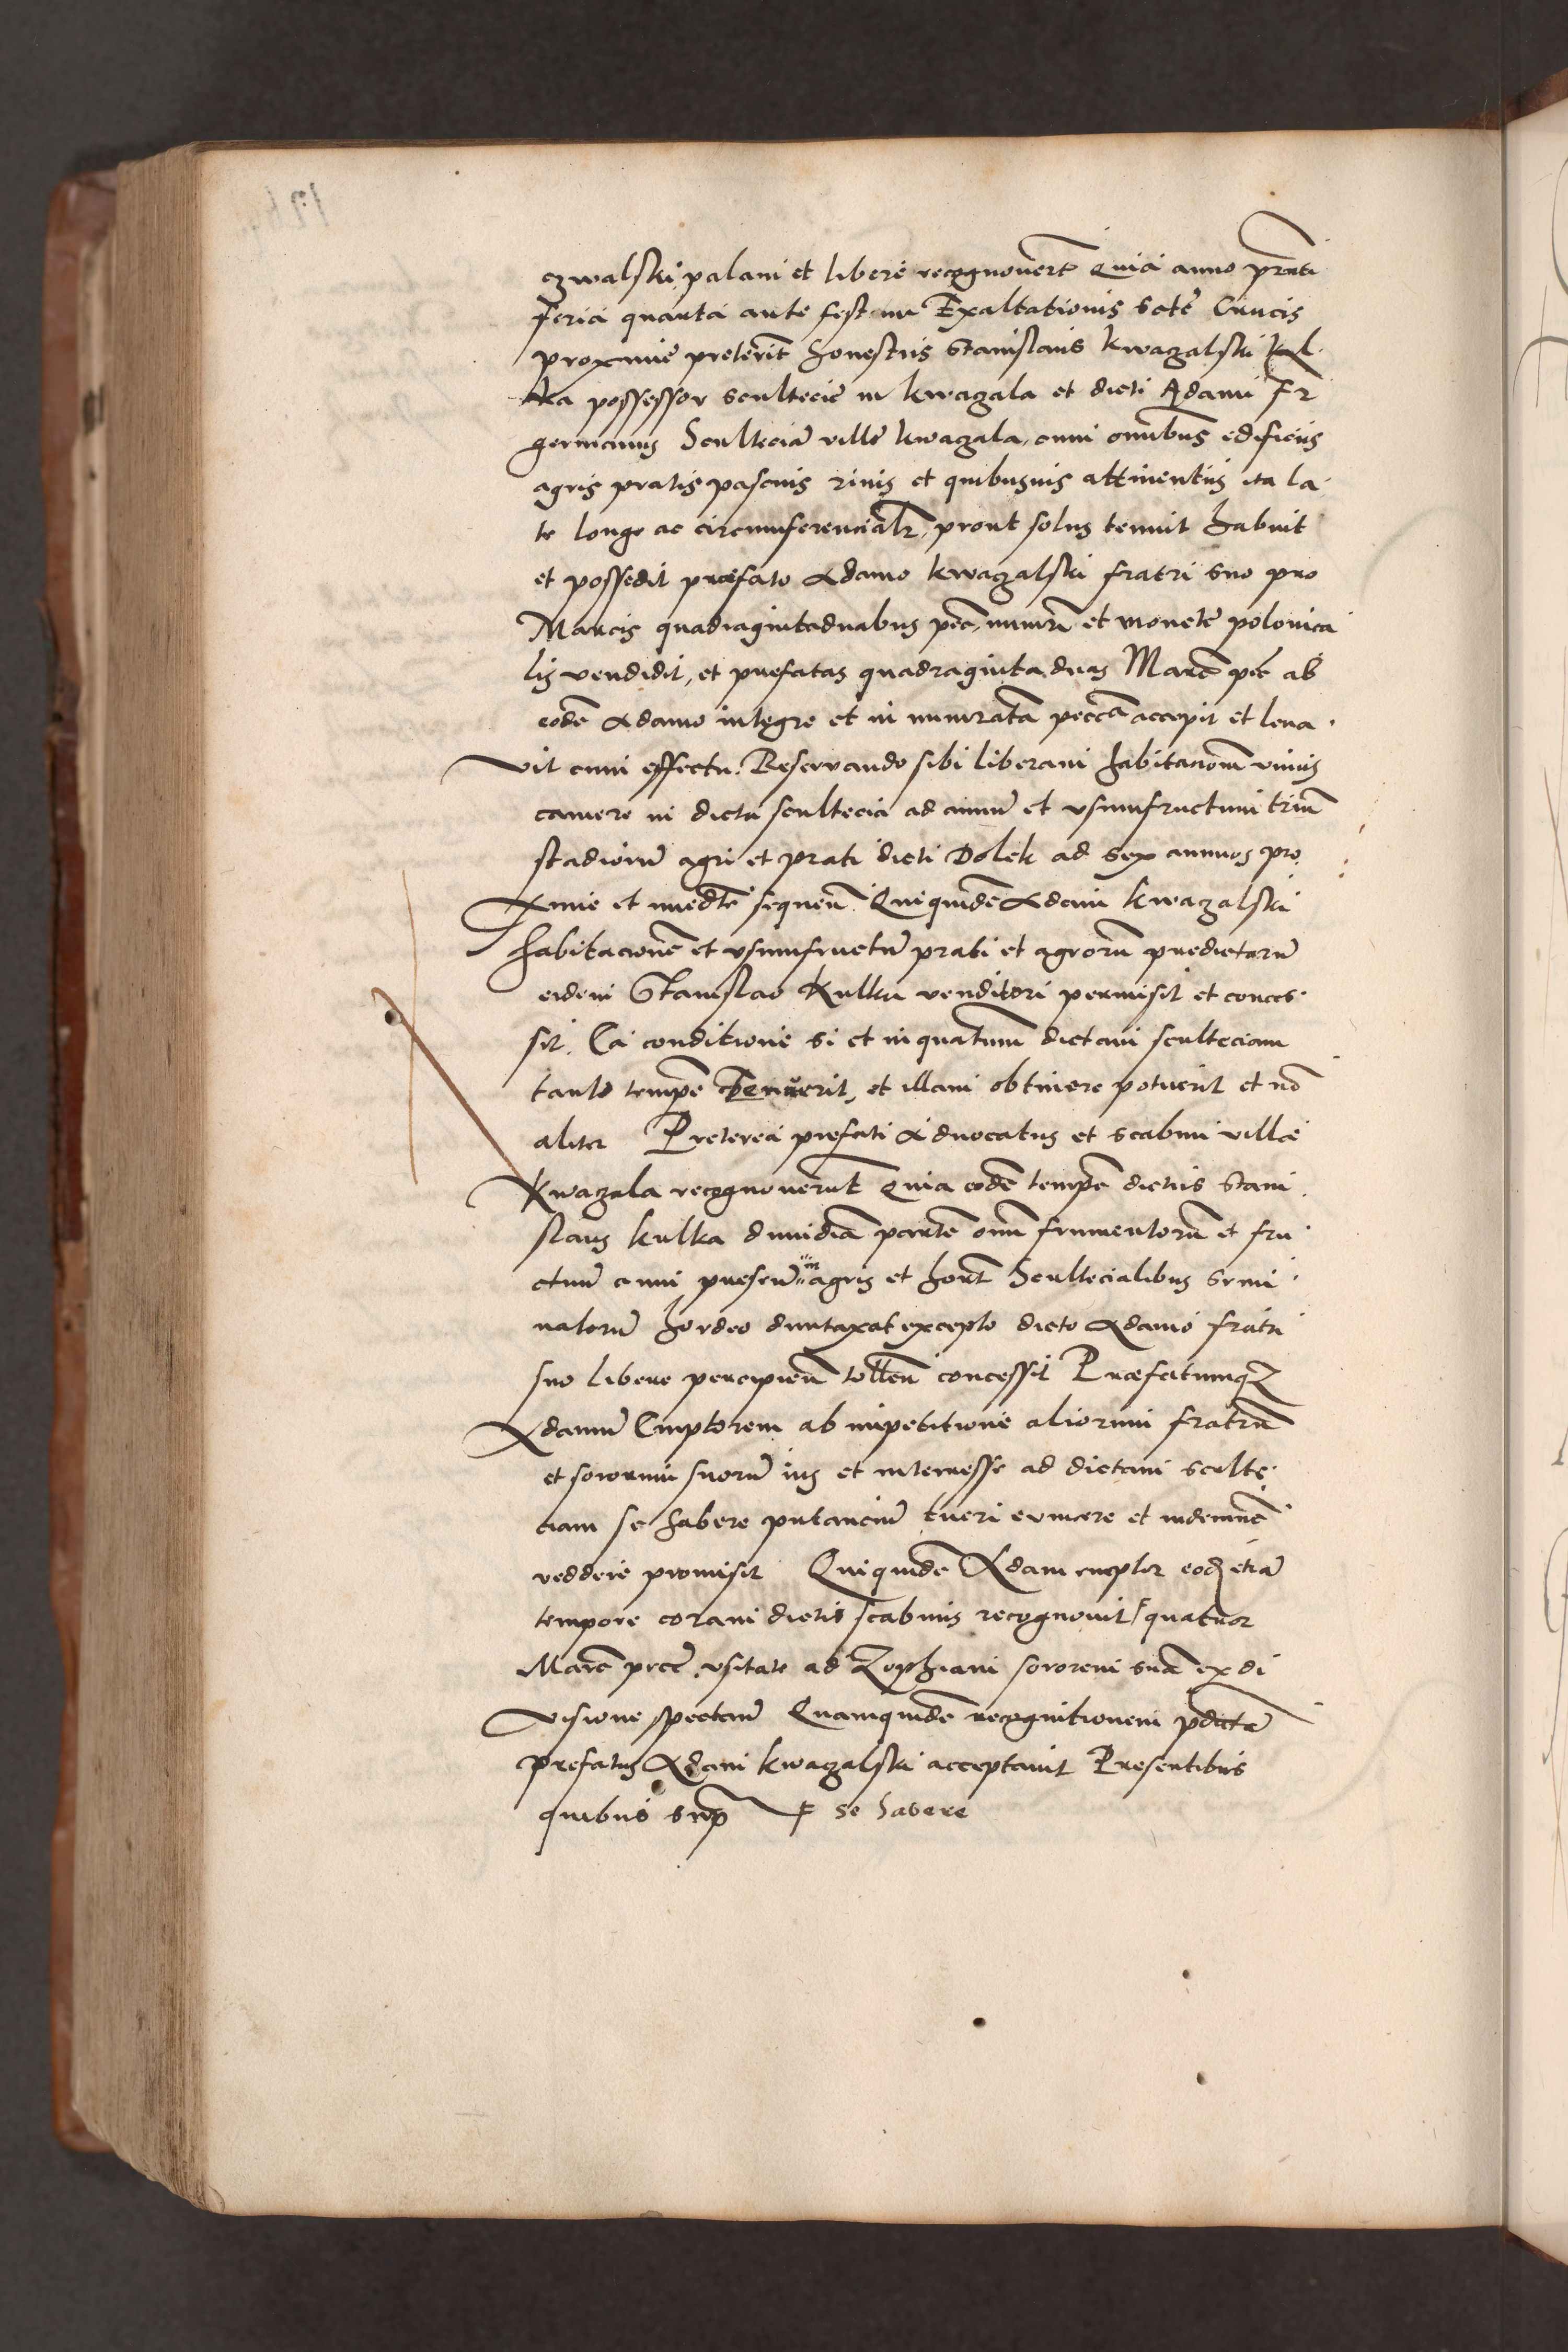 czwalski palam et libere recognovert Quia anno prnti
feria quarta ante festum Exaltationis scte Crucis
proxime preterit honestus Stanislaus kwaczalski kul
ka possessor scultecie in kwaczala et dicti Adami fr
germanus Scultecia ville kwaczala, cum omibus edificiis
agris pratis pascuis rivis et quibusvis attinentiis ita la
te longe ac circumferencialr, prout solus tenuit habuit
et possedit præfato Adamo kwaczalski fratri suo pro
Marcis quadragintaduabus pec. numeri et monete polonica
lis vendidit, et prefatas quadraginta duas Marc pec ab
eode Adamo integre et in numerata peccia accepit et leva
vit cum effectu. Reservando sibi liberam habitacionem unius
camere in dicta scultecia ad annu et usumfructum triu
stadioru agri et prati dicti Dolek ad sex annuos pro
xime et imedte sequen. Qui quide Adam kwaczalski
habitacione et usumfructu prati et agroru predictoru
eidem Stanislao Kulka venditori permisit et conces
sit. Ea conditione si et inquatum dictam sculteciam
tanto tempe tenuerit, et illam obtinere potuerit et no
aliter Preterea prefati Advocatus et scabini villæ
Kwaczala recognoverut Quia eode tempe dictus Stani
slaus kulka dimidia parte omn frumentoru et fru
ctuu anni presen in agris et hort Scultecialibus semi
natoru hordeo duntaxat excepto dicto Adamo fratri
suo libere percipien tollen concessit Præfatumqz
Adamu Emptorem ab impetitione aliorum fratru
et sororum suoru ius et interesse ad dictam sculte
ciam se habere putanciu tueri evincere et indemne
reddere promisit Qui quide Adam emptor eod etia
tempore coram dictis scabinis recognovit quatuor
Marc pece. usitate ad Zophiam sororem sua ex di
visione spectan Quamquide recognitionem pdicta
prefatus Adam kwaczalski acceptavit Presentibus
quibus sup se habere